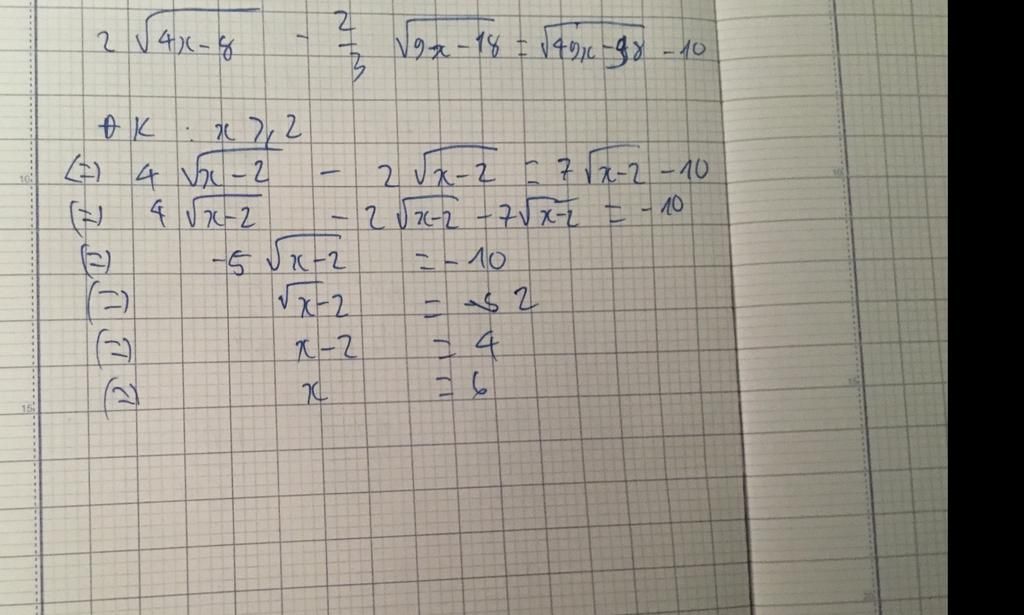 2 √(4x-8) - 2/3 √(9x-18) = √(49x-98) - 10
ĐK : x ≥ 2
(=) 4 √(x-2) - 2 √(x-2) = 7 √(x-2) - 10
(=) 4 √(x-2) - 2 √(x-2) - 7 √(x-2) = -10
(=) -5 √(x-2) = -10
(=) √(x-2) = 2
(=) x-2 = 4
(=) x = 6